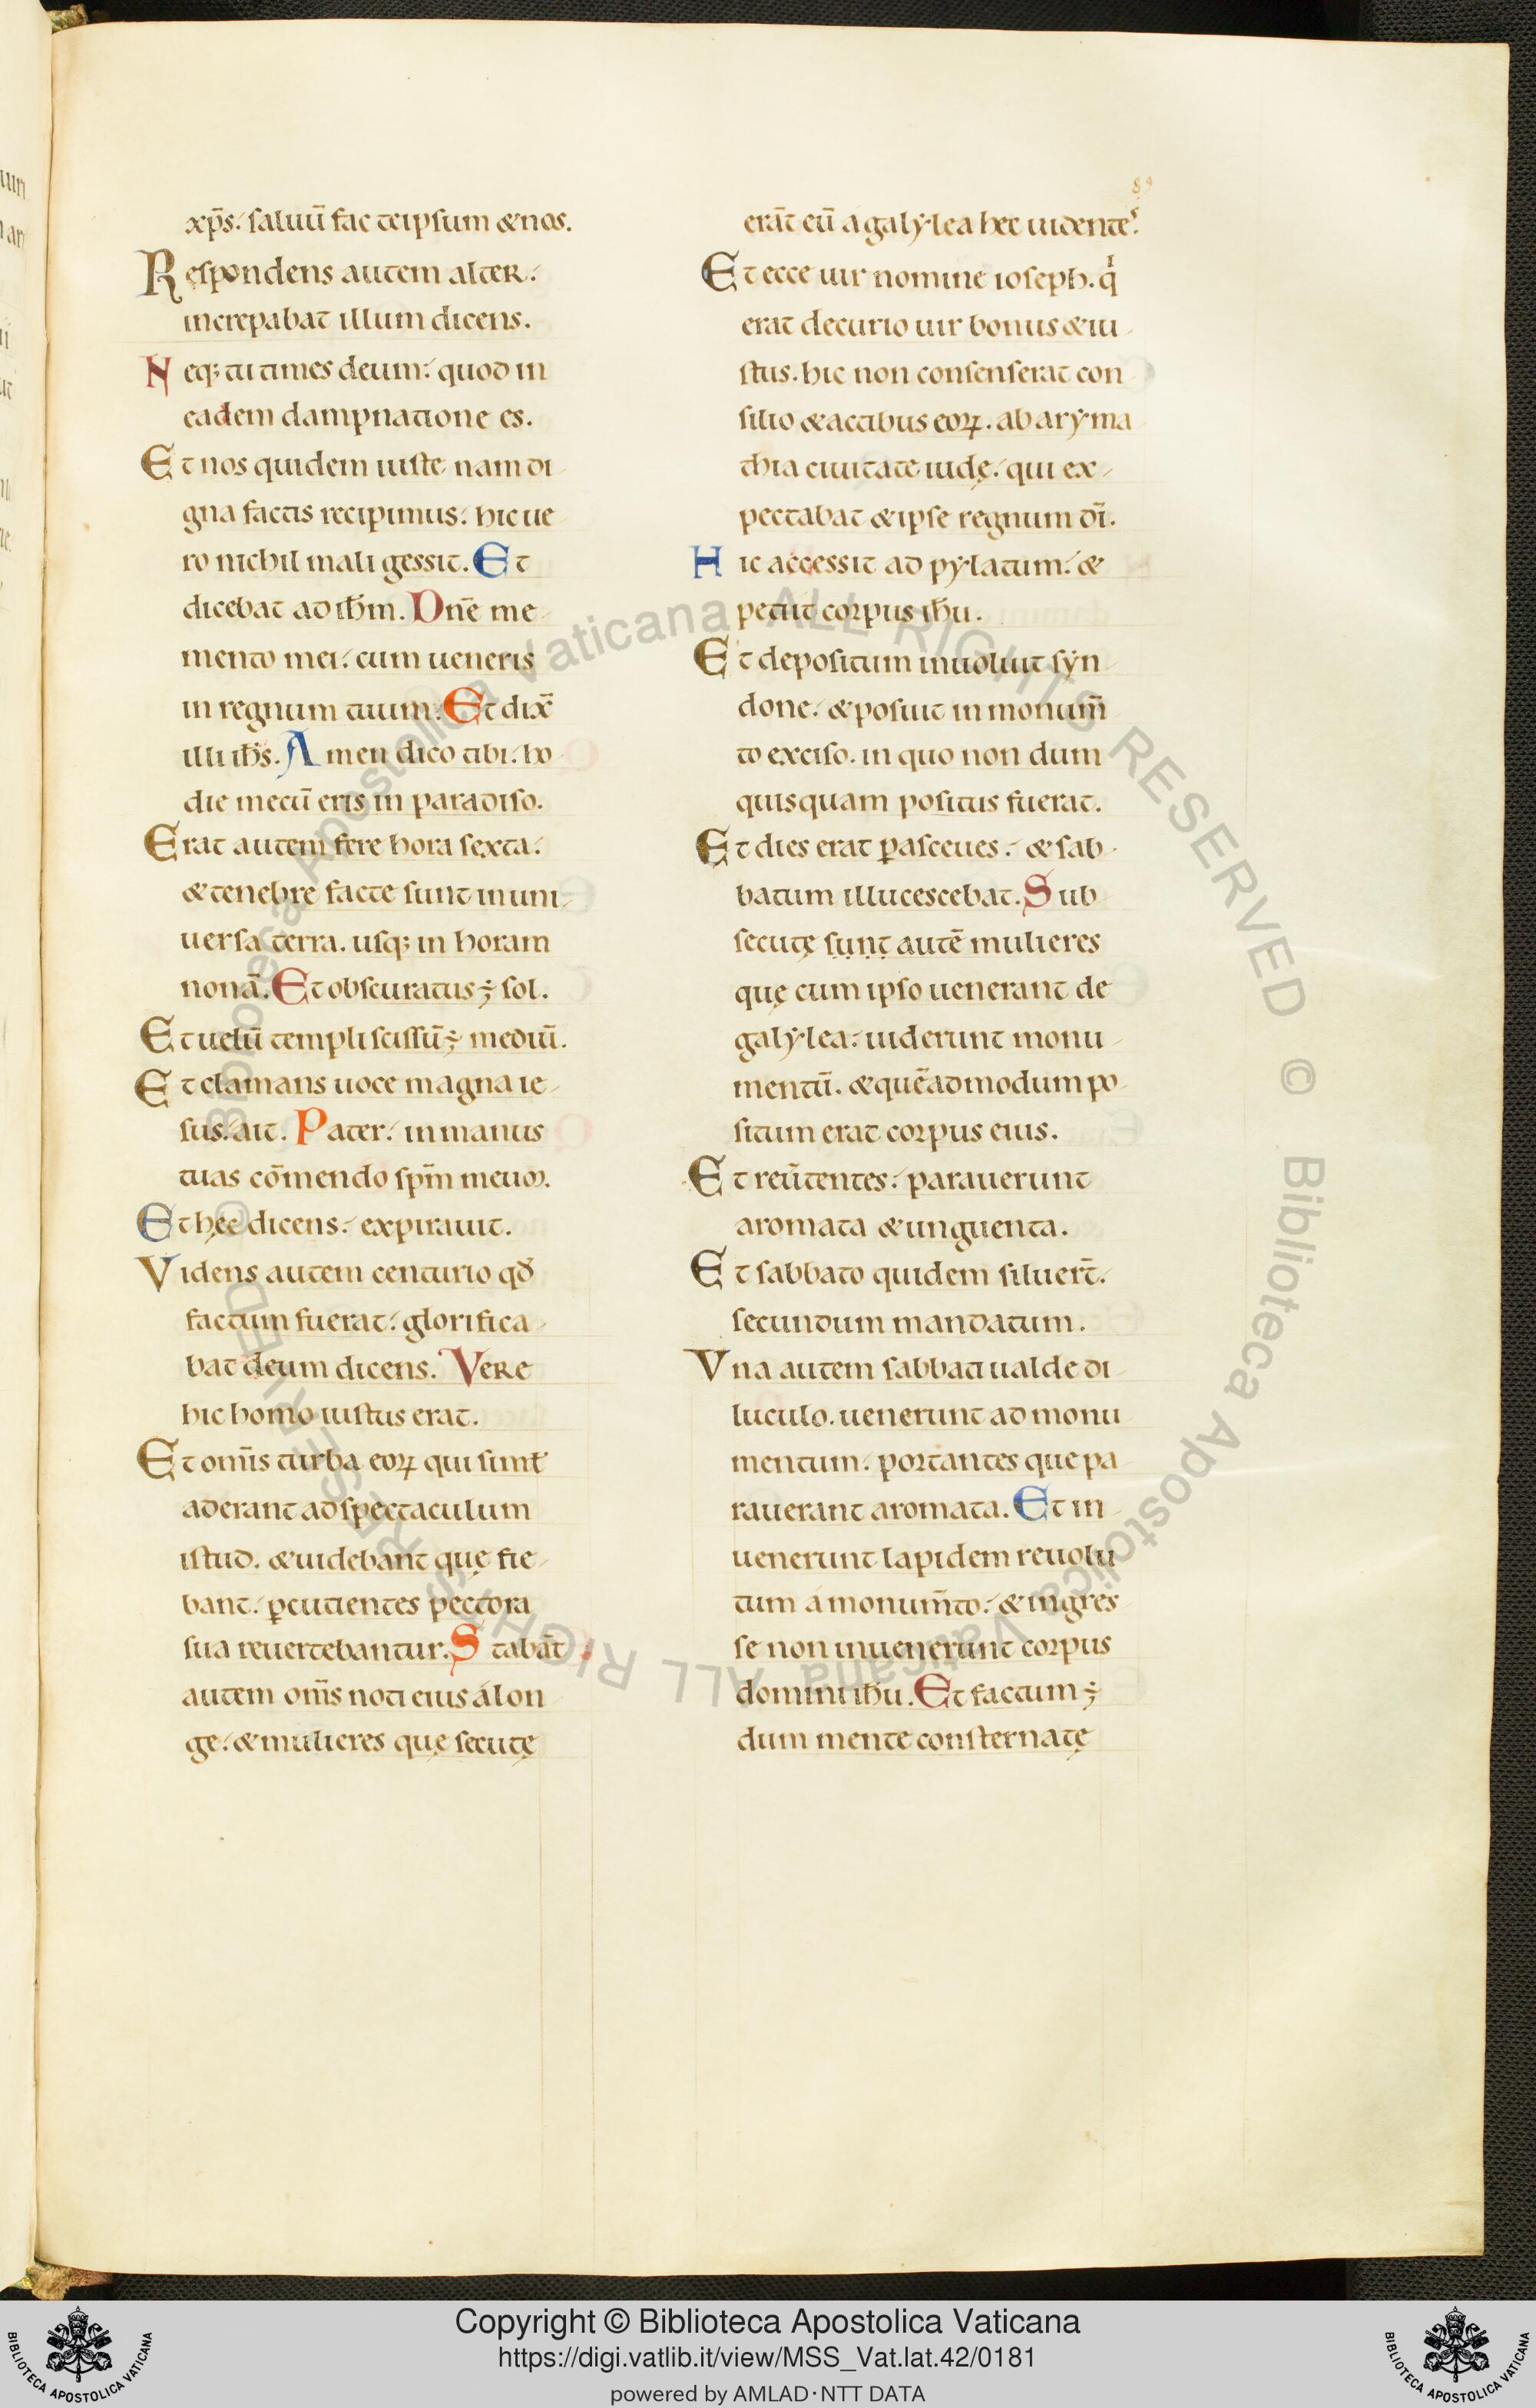 xp̅s. saluū fac teipsum & nos.
Respondens autem alter.
increpabat illum dicens.
Neq; tu times deum. quod in
eadem dampnatione es.
Et nos quidem iuste nam di
gna factis recipimus. hic ue
ro nichil mali gessit. Et
dicebat ad ih̅m. Dn̅e me
mento mei. cum ueneris
in regnum tuum. Et dix̅
illi ih̅s. Amen dico tibi. ho
die mecū eris in paradiso.
Erat autem fere hora sexta.
& tenebre facte sunt in uni
uersa terra. usq; in horam
nonā. Et obscuratus ÷ sol.
Et uelū templi scissū ÷ mediū.
Et clamans uoce magna ie
sus. ait. Pater. in manus
tuas cōmendo sp̅m meum.
Et hęc dicens. expirauit.
Videns autem centurio qđ
factum fuerat. glorifica
bat deum dicens. Vere
hic homo iustus erat.
Et omīs turba eoꝝ qui simł
aderant ad spectaculum
istud. & uidebant que fie
bant. ꝑcutientes pectora
sua reuertebantur. Stabāt
autem om̅s noti eius á lon
ge. & mulieres quę secutę
89
erāt eū a galylea hec uidentes.
Et ecce uir nomine ioseph. qͥ
erat decurio uir bonus & iu
stus. hic non consenserat con
silio & actibus eoꝝ. ab aryma
thia ciuitate iudę. qui ex
pectabat & ipse regnum dī.
Hic accessit ad pylatum. &
petiit corpus ih̅u.
Et depositum inuoluit syn
done. & posuit in monum̅
to exciso. in quo non dum
quisquam positus fuerat.
Et dies erat ꝑasceues. & sab
batum illucescebat. Sub
secutę sunt autē mulieres
quę cum ipso uenerant de
galylea. uiderunt monu
mentū. & quēadmodum po
situm erat corpus eius.
Et reūtentes. parauerunt
aromata & unguenta.
Et sabbato quidem siluer̅t.
secundum mandatum.
Vna autem sabbati ualde di
luculo. uenerunt ad monu
mentum. portantes que pa
rauerant aromata. Et in
uenerunt lapidem reuolu
tum á monum̅to. & ingres
se non inuenerunt corpus
domini ih̅u. Et factum ÷
dum mente consternatę
Copyright © Biblioteca Apostolica Vaticana
https://digi.vatlib.it/view/MSS_Vat.lat.42/0181
powered by AMLAD·NTT DATA
BIBLIOTECA APOSTOLICA VATICANA
BIBLIOTECA APOSTOLICA VATICANA
© Biblioteca Apostolica Vaticana ALL RIGHTS RESERVED © Biblioteca Apostolica Vaticana ALL RIGHTS RESERVED